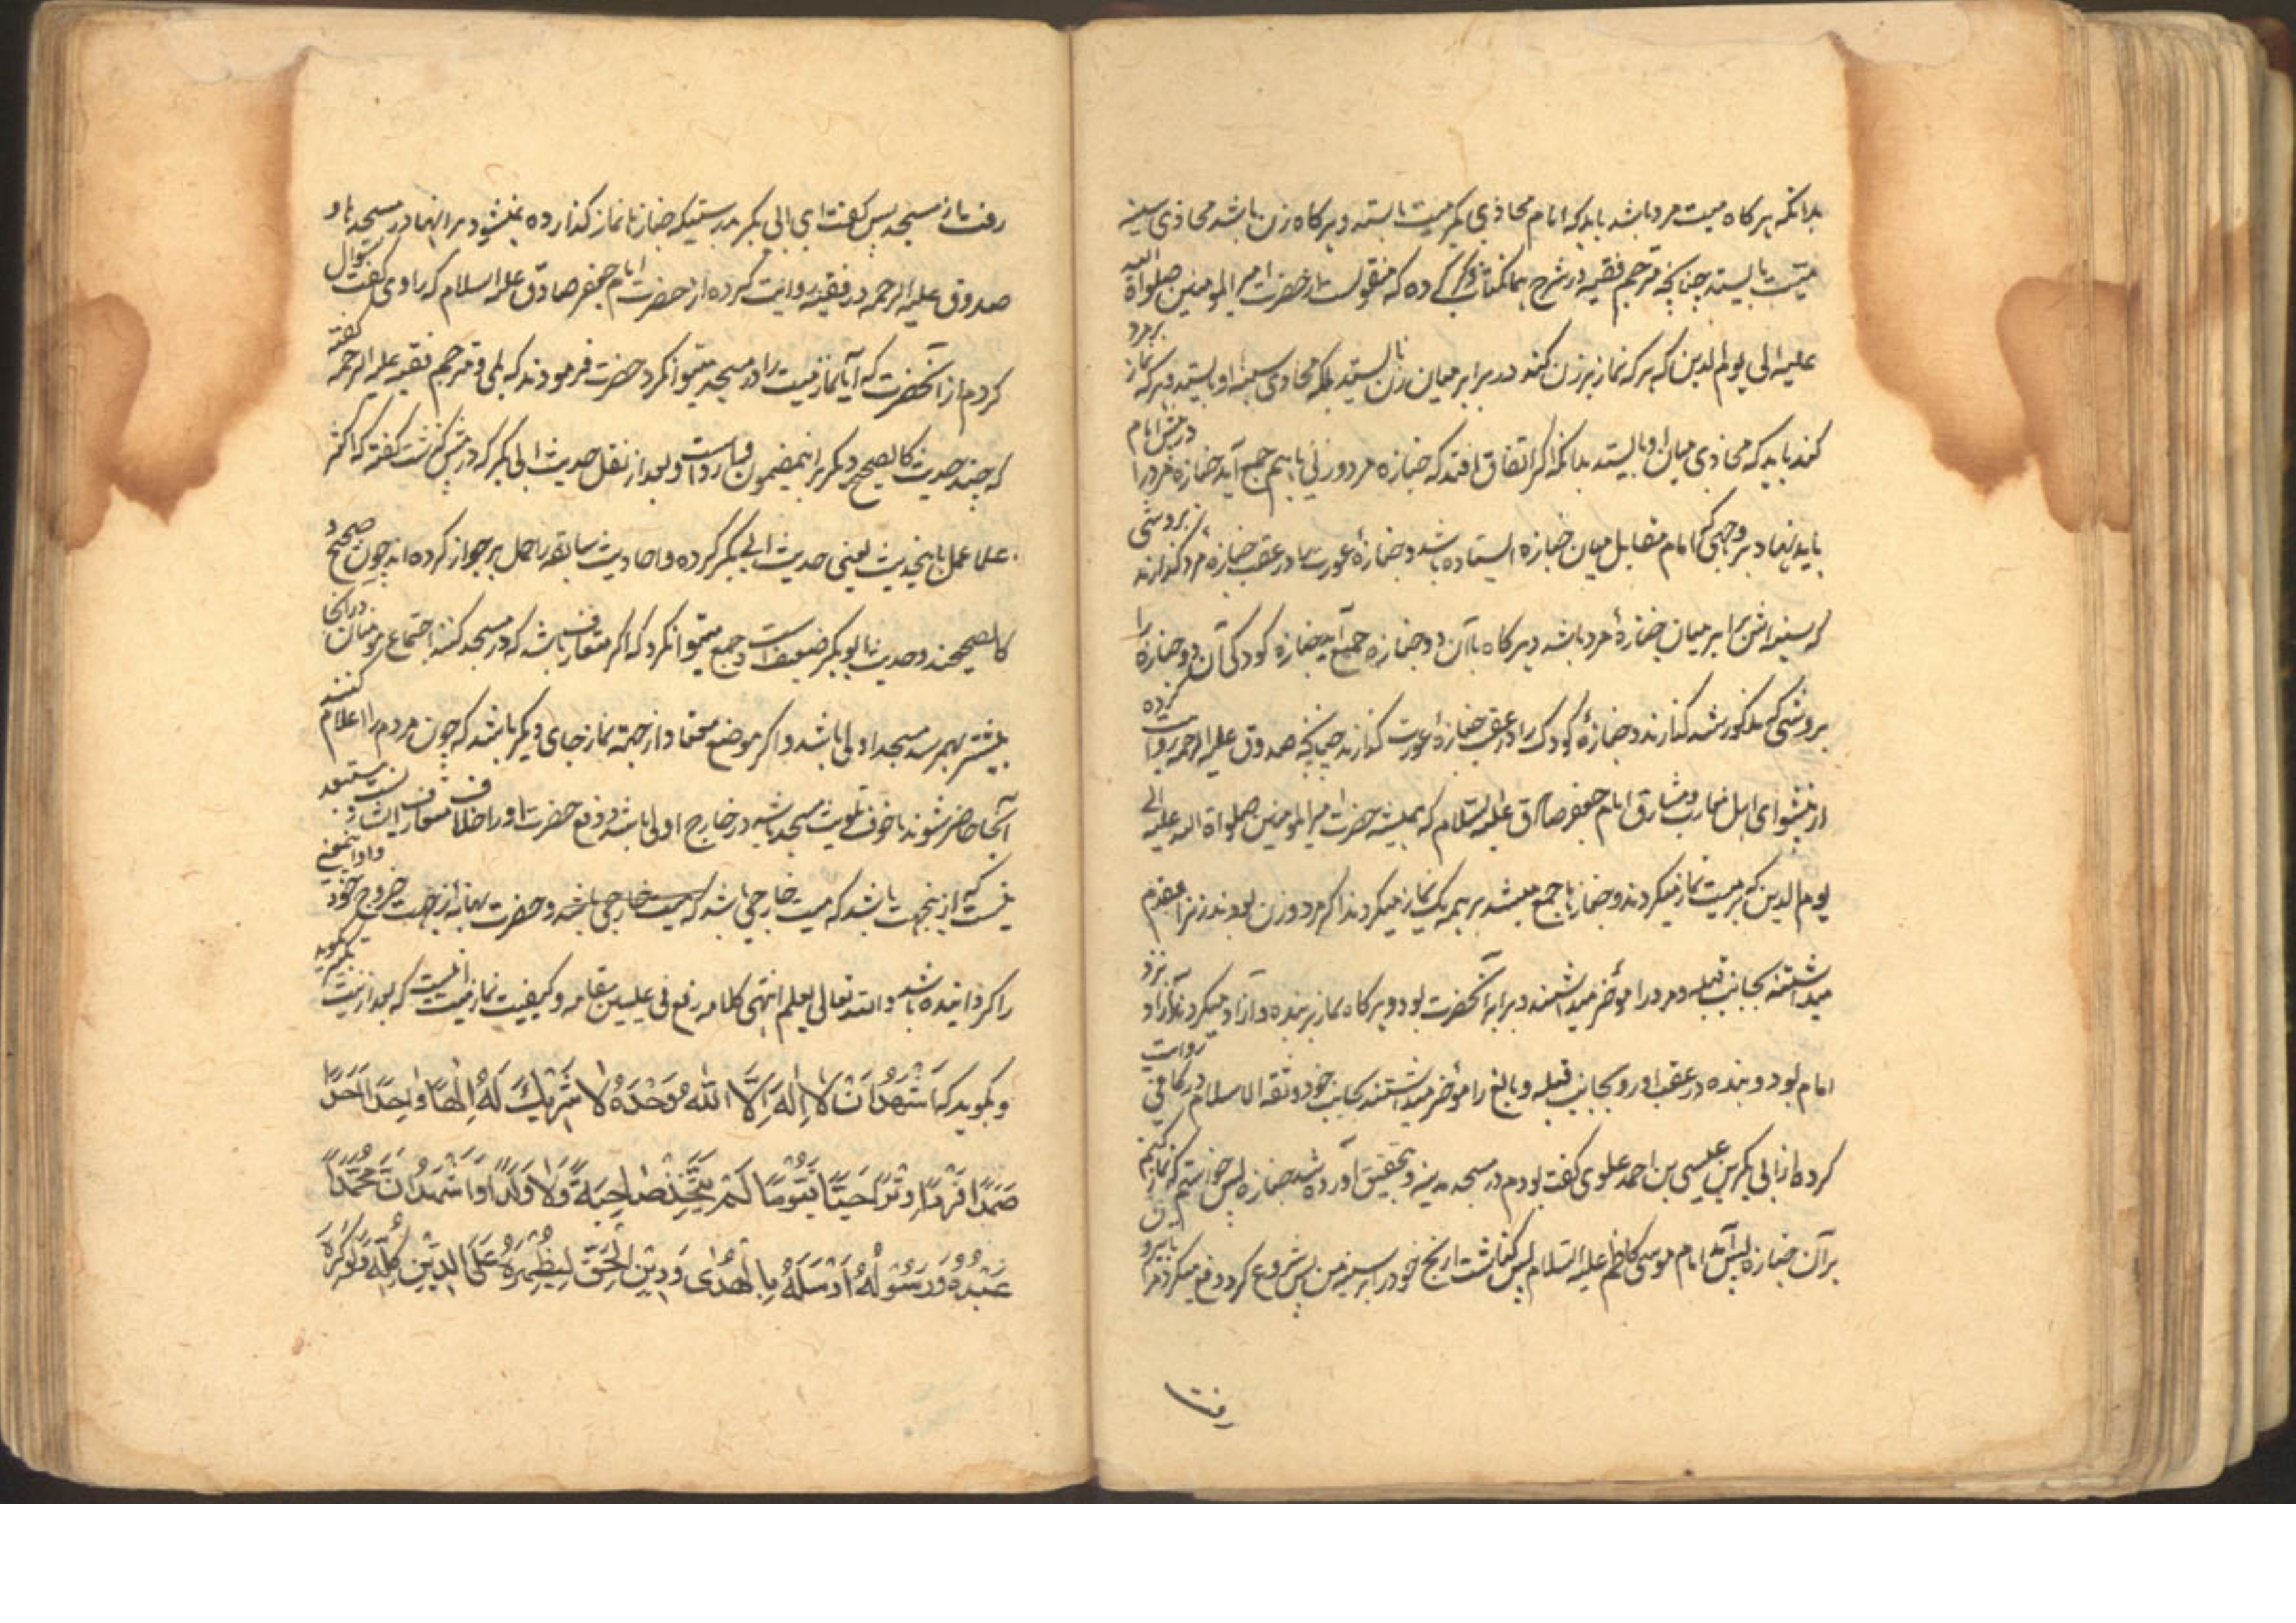 بدانکه هر کاه میت مرد باشد باید که امام محاذی کمر میت بایستد و هر کاه زن باشد محاذی سینه
میت بایستد چنانچه مترجم فقیه در شرح همانکتاب ذکر کرده که منقولست از حضرت امیر المومنین صلواة الله
علیه الی یوم الدین که هر که نماز بر زن کند در برابر میان زن نایستد بلکه محاذی سینه او بایستد و هر که نماز بر مرد
کند باید که محاذی میان او بایستد بدانکه اکر اتفاق افتد که جنازه مرد و زنی با هم جمع آید جنازه مرد را در پیش امام
باید نهاد بر وجهی که امام مقابل میان جنازه ایستاده باشد و جنازهٔ عورت را در عقب جنازهٔ مرد کذارند بروشی
که سینه اش برابر میان جنازهٔ مرد باشد و هر کاه با آن دو جنازه جمع آید جنازه کودکی آن دو جنازه را
بروشی که مذکور شد کذارند و جنازهٔ کودک را در عقب جنازهٔ عورت کذارند چنانچه صدوق علیه الرحمه روایت کرده
از پیشوای اهل مغارب و مشارق امام جعفر صادق علیه السّلام که همیشه حضرت امیر المومنین صلواة الله علیه الی
یوم الدین که بر میت نماز میکردند و جنازها جمع میشد بر همه یک نماز میکردند اکر مرد و زن بودند زنرا مقدم
میداشتند بجانب قبله و مرد را مؤخر میداشتند و برابر آنحضرت بود و هر کاه نماز بر بنده و آزاد میکردند آزاد نزد
امام بود و بنده در عقب او رو بجانب قبله و بالغ را مؤخر میداشتند بجانب خود و ثقة الاسلام در کافی روایت
کرده از ابی بکر بن عیسی بن احمد علوی کفت بودم در مسجد مدینه و بتحقیق آورده شد جنازه پس خواستم که نماز کنم
بر آن جنازه پس آمد امام موسی کاظم علیه السّلام پس کذاشت ارنج خود را بر سینه من پس شروع کرد و دفع میکرد مرا تا بیرون
رفت
رفت از مسجد پس کفت ای ابی بکر بدرستیکه جنازها نماز کذارده نمیشود بر انها در مسجدها و
صدوق علیه الرحمه در فقیه روایت کرده از حضرت امام جعفر صادق علیه السلام که راوی کفت سؤال
کردم از آنحضرت که آیا نماز میت را در مسجد میتوان کرد حضرت فرمودند که بلی و مترجم فقیه علیه الرحمه کفته
که چند حدیث کالصحیح دیکر بر اینمضمون وارد است و بعد از نقل حدیث ابی بکر که در پیش کذشت کفته که اکثر
علما عمل باینحدیث یعنی حدیث ابی بکر کرده و احادیث سابقه را حمل بر جواز کرده اند چون صحیح و
کالصحیحند و حدیث ابو بکر ضعیف است و جمع میتوان کرد که اکر متعارف باشد که در مسجد کنند اجتماع مومنان در انجا
بیشتر بهم رسد مسجد اولی باشد و اکر موضع معتاد از جهة نماز جای دیکر باشد که چون مردم را اعلام کنند
آنجا حاضر شوند یا خوف تلویث مسجد باشد در خارج اولی باشد و دفع حضرت او را خلاف متعارفست و مستبعد
نیست که از ینجهت باشد که میت خارجی باشد که میت خارجی باشد و حضرت بهانه از جهت خروج خود و او اینمعنی
را کردانیده باشد و الله تعالی یعلم انتهی کلامه رفع فی علیین مقامه و کیفیت نماز میت اینست که بعد از نیت تکبیر کوید
و بکوید که اَشْهَدُ اَنْ لا اِلهَ اِلَّا اللهُ وَحْدَهُ لا شَرِیْكَ لَهُ اِلٰهًا وَاحِدًا اَحَدًا
صَمَدًا فَرْدًا وِتْرًا حَیًّا قَیُّوْمًا لَمْ یَتَّخِذْ صَاحِبَةً وَلَا وَلَدًا وَاَشْهَدُ اَنَّ مُحَمَّدًا
عَبْدُهُ وَرَسُوْلُهُ اَرْسَلَهُ بِالْهُدٰی وَدِیْنِ الْحَقِّ لِیُظْهِرَهُ عَلَی الدِّیْنِ کُلِّهِ وَلَوْ کَرِهَ